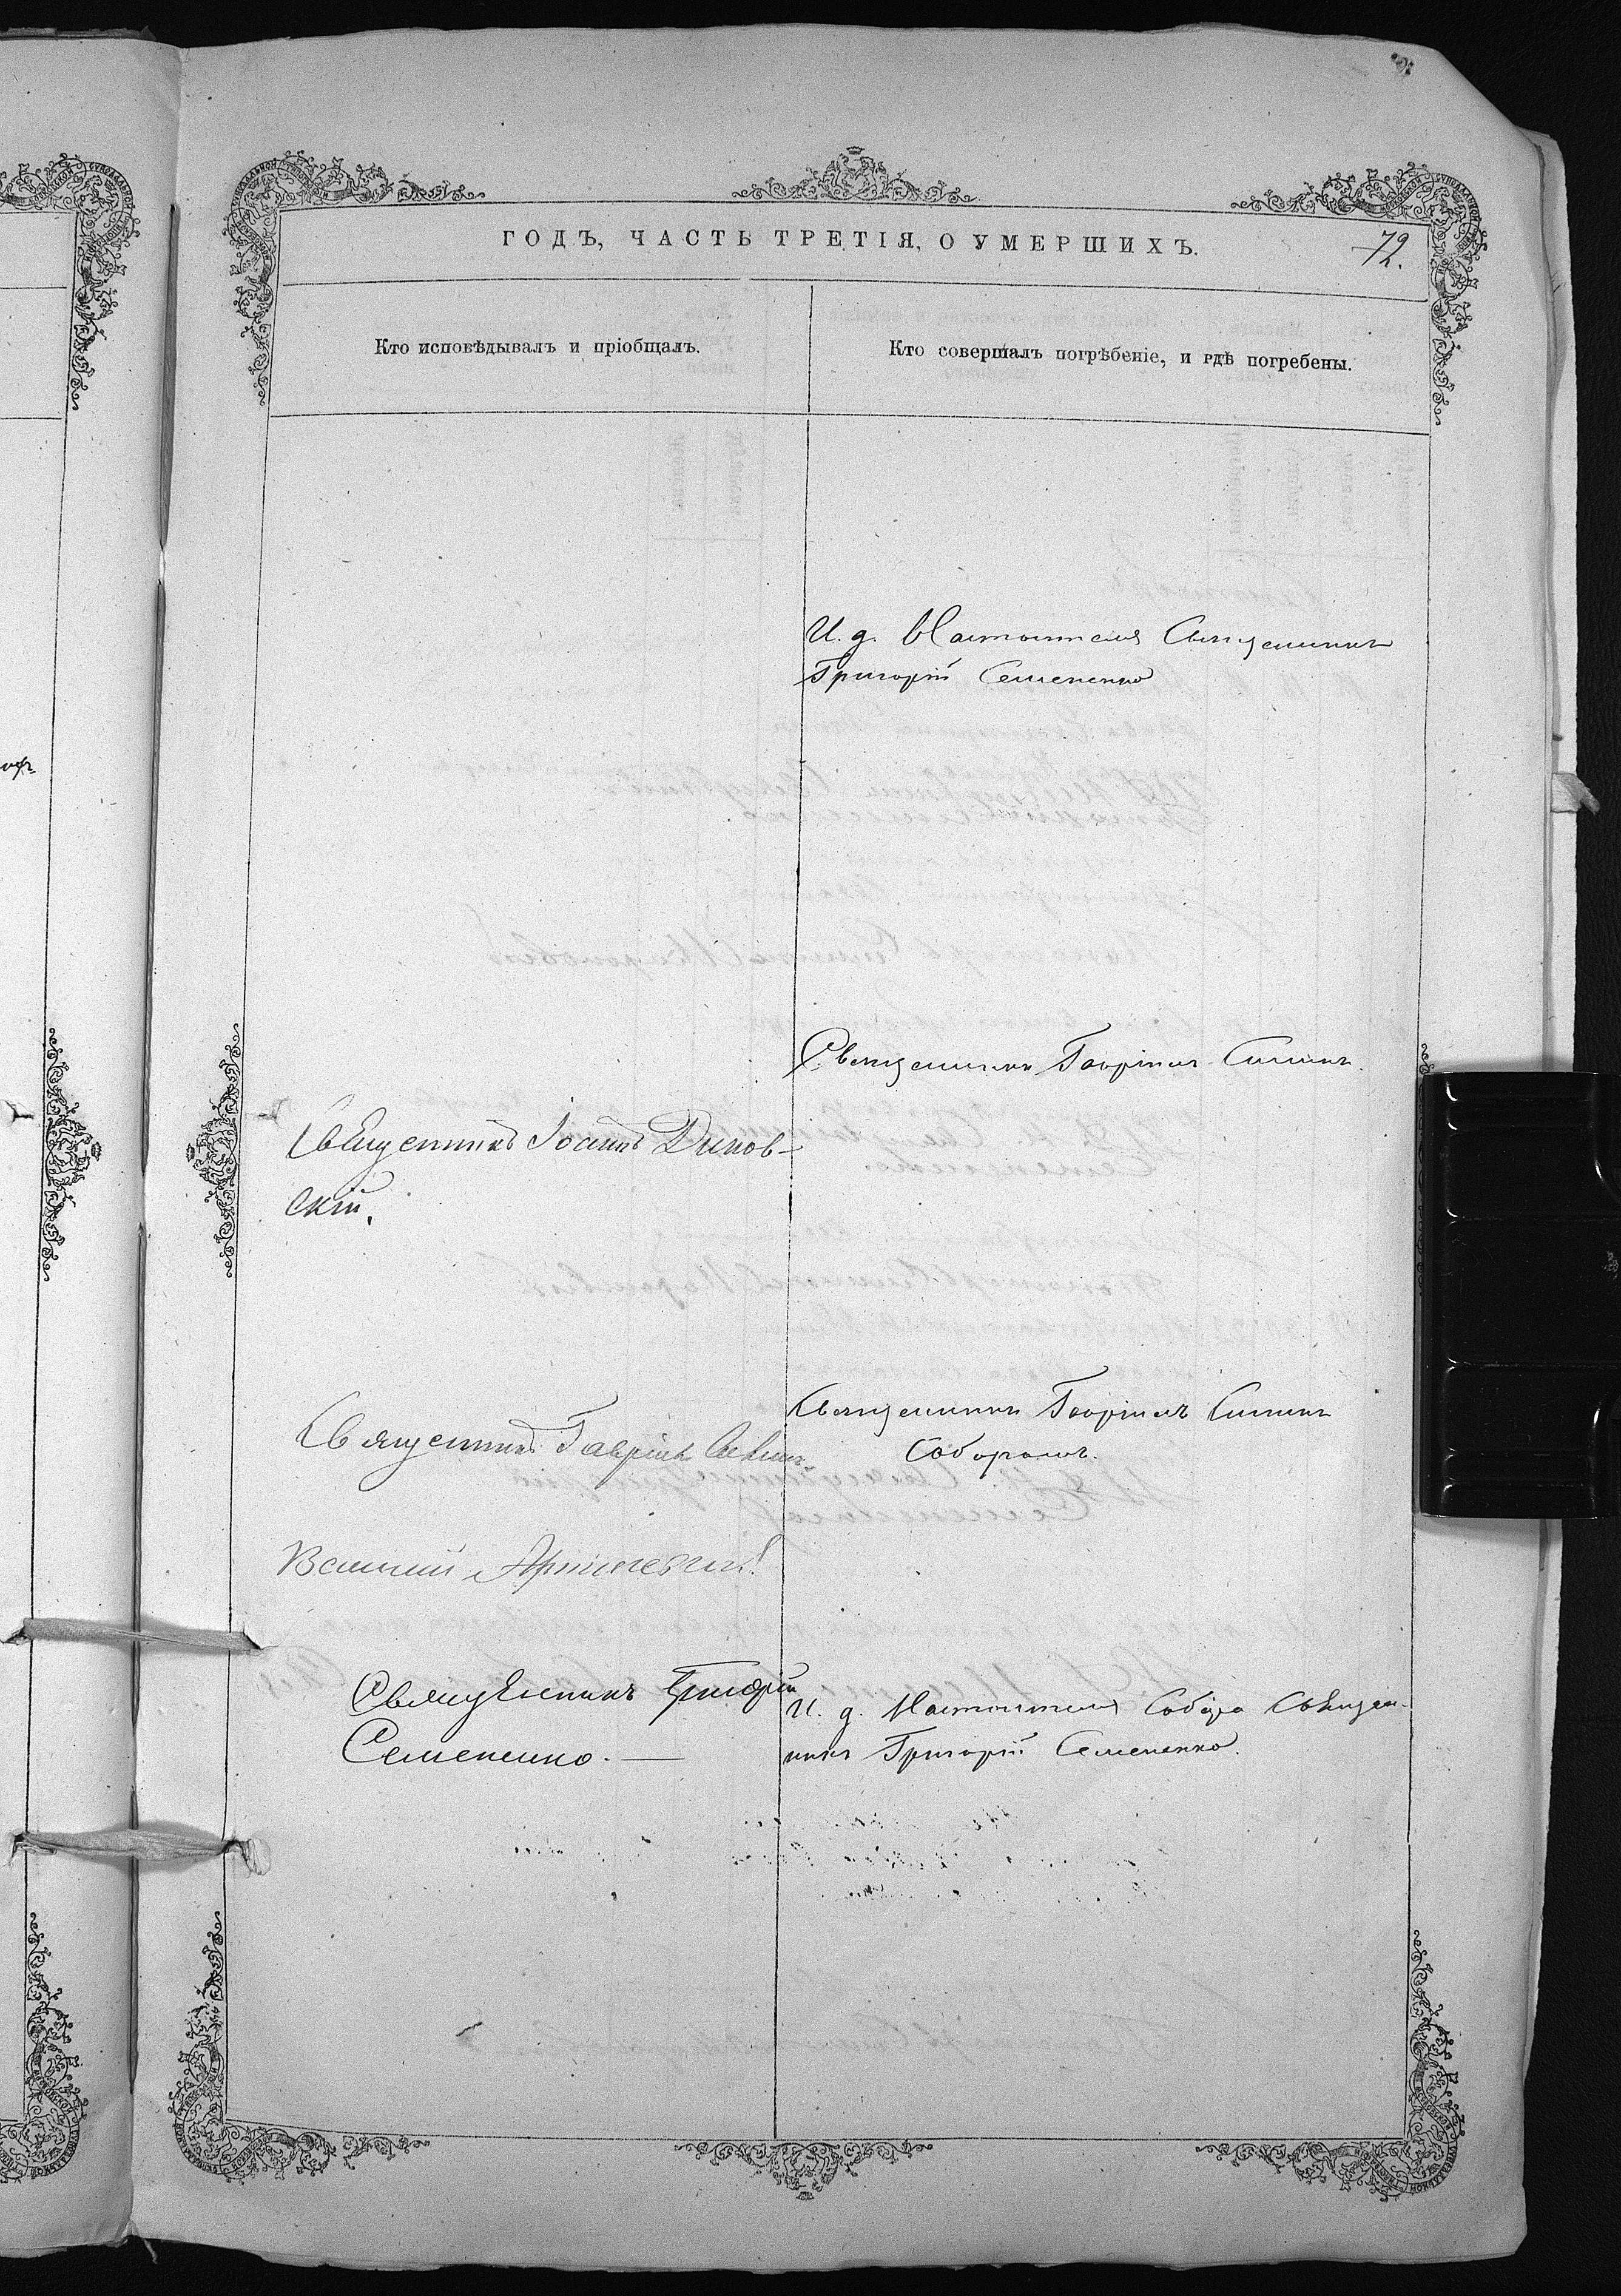 ГОДЪ, ЧАСТЬ ТРЕТІЯ, О УМЕРШИХЪ.
72.
Кто исповѣдывалъ и пріобщалъ.
Кто совершалъ погрѣбеніе, и гдѣ погребены.
И. д. Настоятеля Священникъ
Григорій Семененко
Священникъ Гавріилъ
Священникъ Іоаннъ Диков-
скій.
Священникъ Гавріилъ
Соборомъ.
Священникъ Гавріилъ
Василій
Священникъ Григорій
Семененко. —
И. д. Настоятеля Собора Священ-
никъ Григорій Семененко.